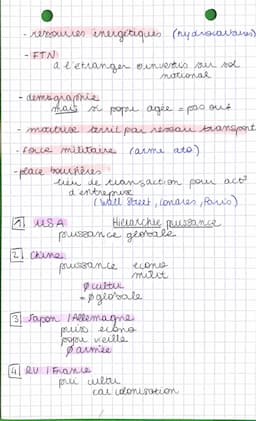 - ressources énergétiques (hydrocarbures)
- FTN
à l'étranger ouverts sur sol
national
- démographie
mais si popu agée = pas ouf
- maitrise terril par réseau transport
- force militaire (arme ato)
- place boursières
lieu de transaction pour act°
d'entreprise
(Wall Street, Londres, Paris)
1 USA Hiérarchie puissance
puissance globale
2 Chine
puissance écono
milit
Ø cultu
= Ø globale
3 Japon / Allemagne
puis écono
popu vieille
Ø armée
4 RU / France
pui cultu
car colonisation